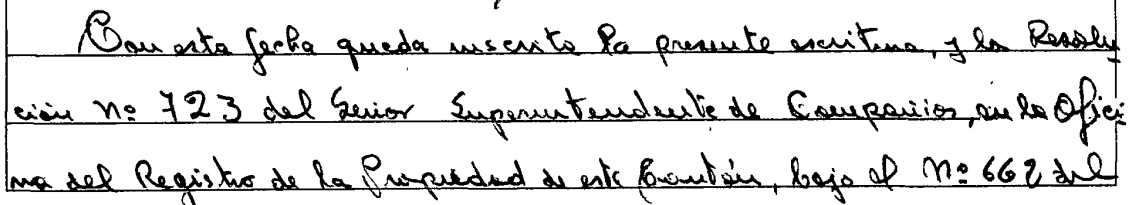 Con esta fecha queda inscrito la presente escritura, y la Resolu
ción Nº 723 del Señor Superintendente de Compañías, en la Ofici
na del Registro de la Propiedad de este Cantón, bajo el Nº 662 del